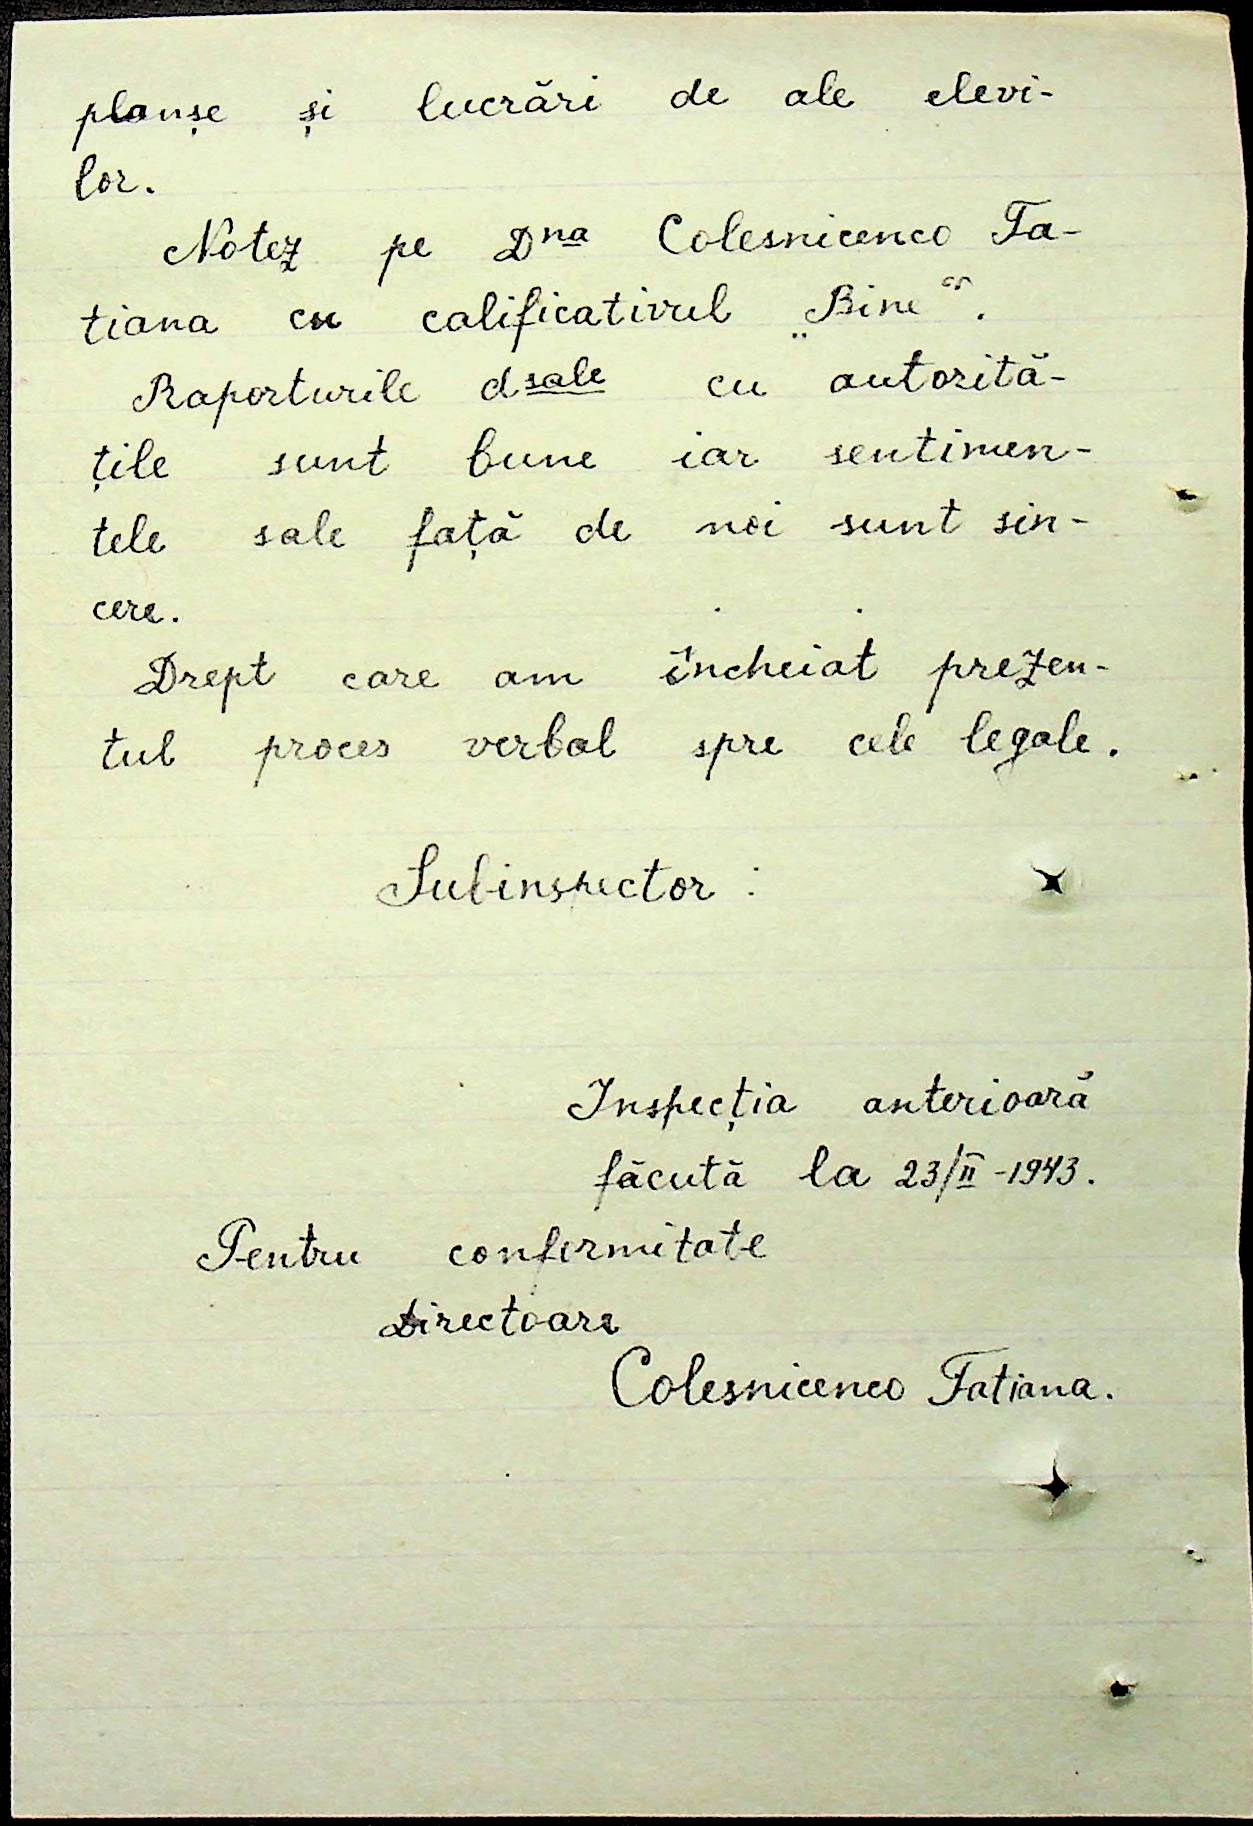 planșe și lucrări de ale elevi-
lor.
Notez pe Dna Colesnicenco Ta-
tiana cu calificativul „Bine“.
Raporturile dsale cu autorită-
țile sunt bune iar sentimen-
tele sale față de noi sunt sin-
cere.
Drept care am încheiat prezen-
tul proces verbal spre cele legale.
Subinspector :
Inspecția anterioară
făcută la 23/II -1943.
Pentru conformitate
Directoare
Colesnicenco Tatiana.